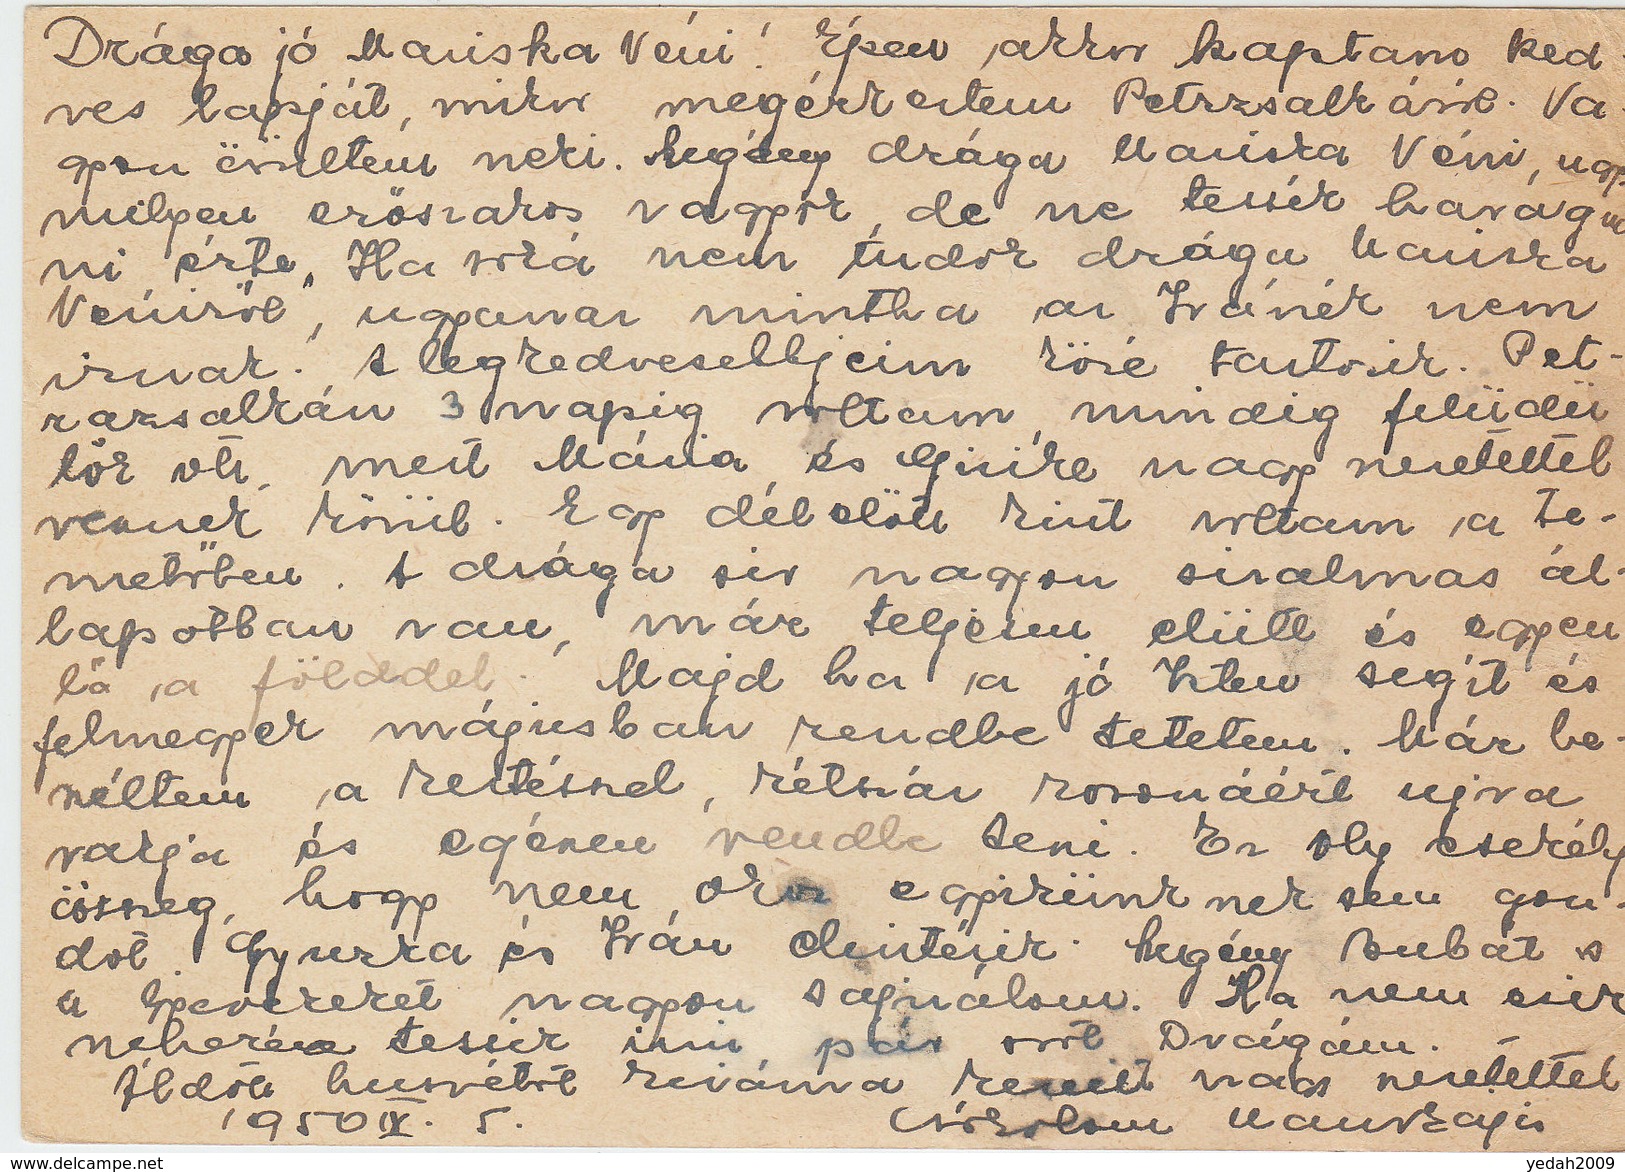 Drága jó Mariska Néni! Épen akkor kaptam ked-
ves lapját, mikor megérkeztem Petrzsalkáról. Na-
gyon örültem neki. Szegény drága Mariska Néni, ugy
milyen erőszakos vagyok, de ne tessék haragud
ni érte. Ha soká nem tudok drága Mariska
Néniről", ugyanaz mintha az Ivánék nem
irnak. A legkedvesebbjeim közé tartozik. Pet-
razsalkán 3 napig voltam, mindig felüdü
lök ott, mert Mária és Gizike nagy szeretettel
vesznek körül. Egy délelőtt kint voltam a te-
metőben. A drága sir nagyon siralmas ál-
lapotban van, már teljesen elsült és egyen
lő a földdel. Majd ha a jó Isten segít és
felmegyek májusban rendbe tetetem. Már be-
széltem a kertésznel, kétszáz koronáért ujra
rakja és egészen rendbe teszi. Ez oly csekély
összeg, hogy nem okoz egyikünknek sem gon-
dot. Gyurka és Iván elintézik. Szegény Bubát s
a gyerekeket nagyon sajnálom. Ha nem esik
nehezére tessék irni pár sort Drágám.
Áldott husvétot kivánva kezeit nagy szeretettel
1950 IX. 5. Csókolom Manczájis
yedah2009
delcampe.net